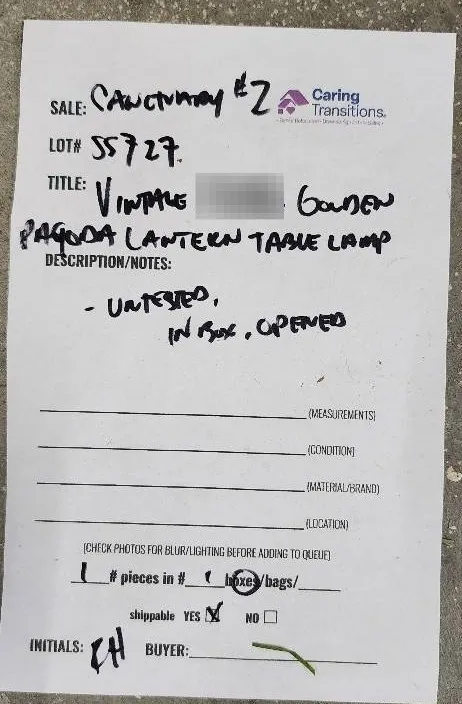 SALE: SANCTUARY #2 Caring
Transitions
LOT# 55727.
TITLE: VINTAGE GOLDEN
PAGODA LANTERN TABLE LAMP
DESCRIPTION/NOTES:
- UNTESTED,
IN BOX, OPENED
(MEASUREMENTS)
(CONDITION)
(MATERIAL/BRAND)
(LOCATION)
(CHECK PHOTOS FOR BLUR/LIGHTING BEFORE ADDING TO QUEUE)
1 # pieces in # 1 boxes/bags/
shippable YES NO
INITIALS: BUYER: